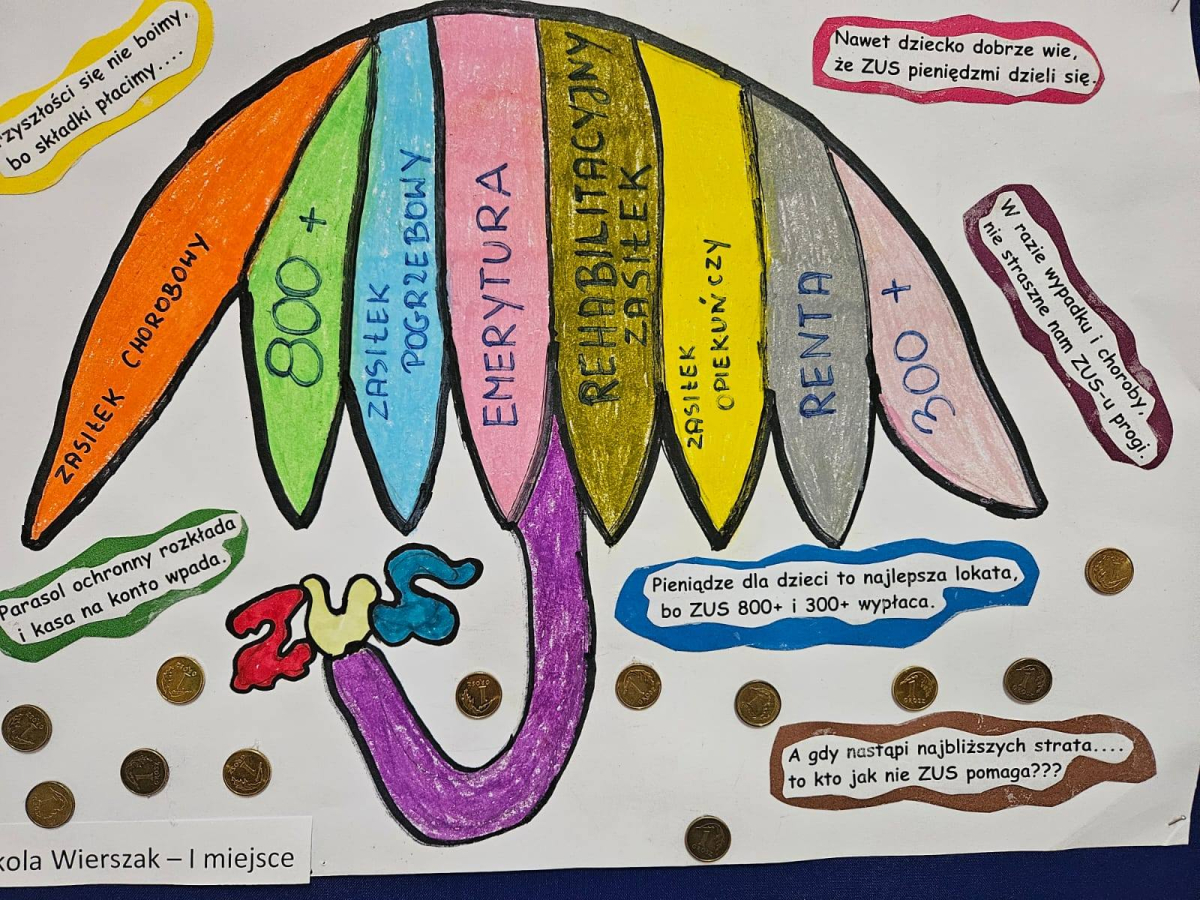 rzyszłości się nie boimy,
bo składki płacimy....
Nawet dziecko dobrze wie,
że ZUS pieniędzmi dzieli się.
W razie wypadku i choroby,
nie straszne nam ZUS-u progi.
ZASIŁEK CHOROBOWY
800 +
ZASIŁEK
POGRZEBOWY
EMERYTURA
REHABILITACYJNY
ZASIŁEK
ZASIŁEK
OPIEKUŃCZY
RENTA
300 +
Parasol ochronny rozkłada
i kasa na konto wpada.
ZUS
Pieniądze dla dzieci to najlepsza lokata,
bo ZUS 800+ i 300+ wypłaca.
A gdy nastąpi najbliższych strata....
to kto jak nie ZUS pomaga???
kola Wierszak – I miejsce